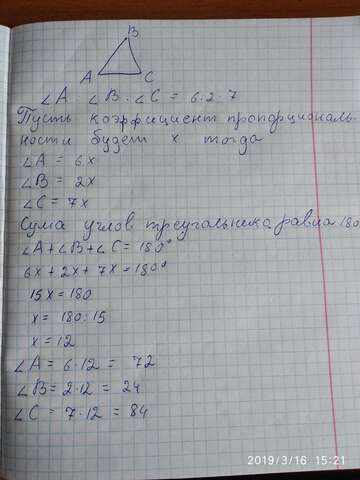 B
A C
∠A : ∠B : ∠C = 6:2:7
Пусть коэффициент пропорциональ-
ности будет x тогда
∠A = 6x
∠B = 2x
∠C = 7x
Сума углов треугольника равна 180
∠A+∠B+∠C = 180°
6x + 2x + 7x = 180°
15x = 180
x = 180:15
x = 12
∠A = 6·12 = 72
∠B = 2·12 = 24
∠C = 7·12 = 84
2019/3/16 15:21